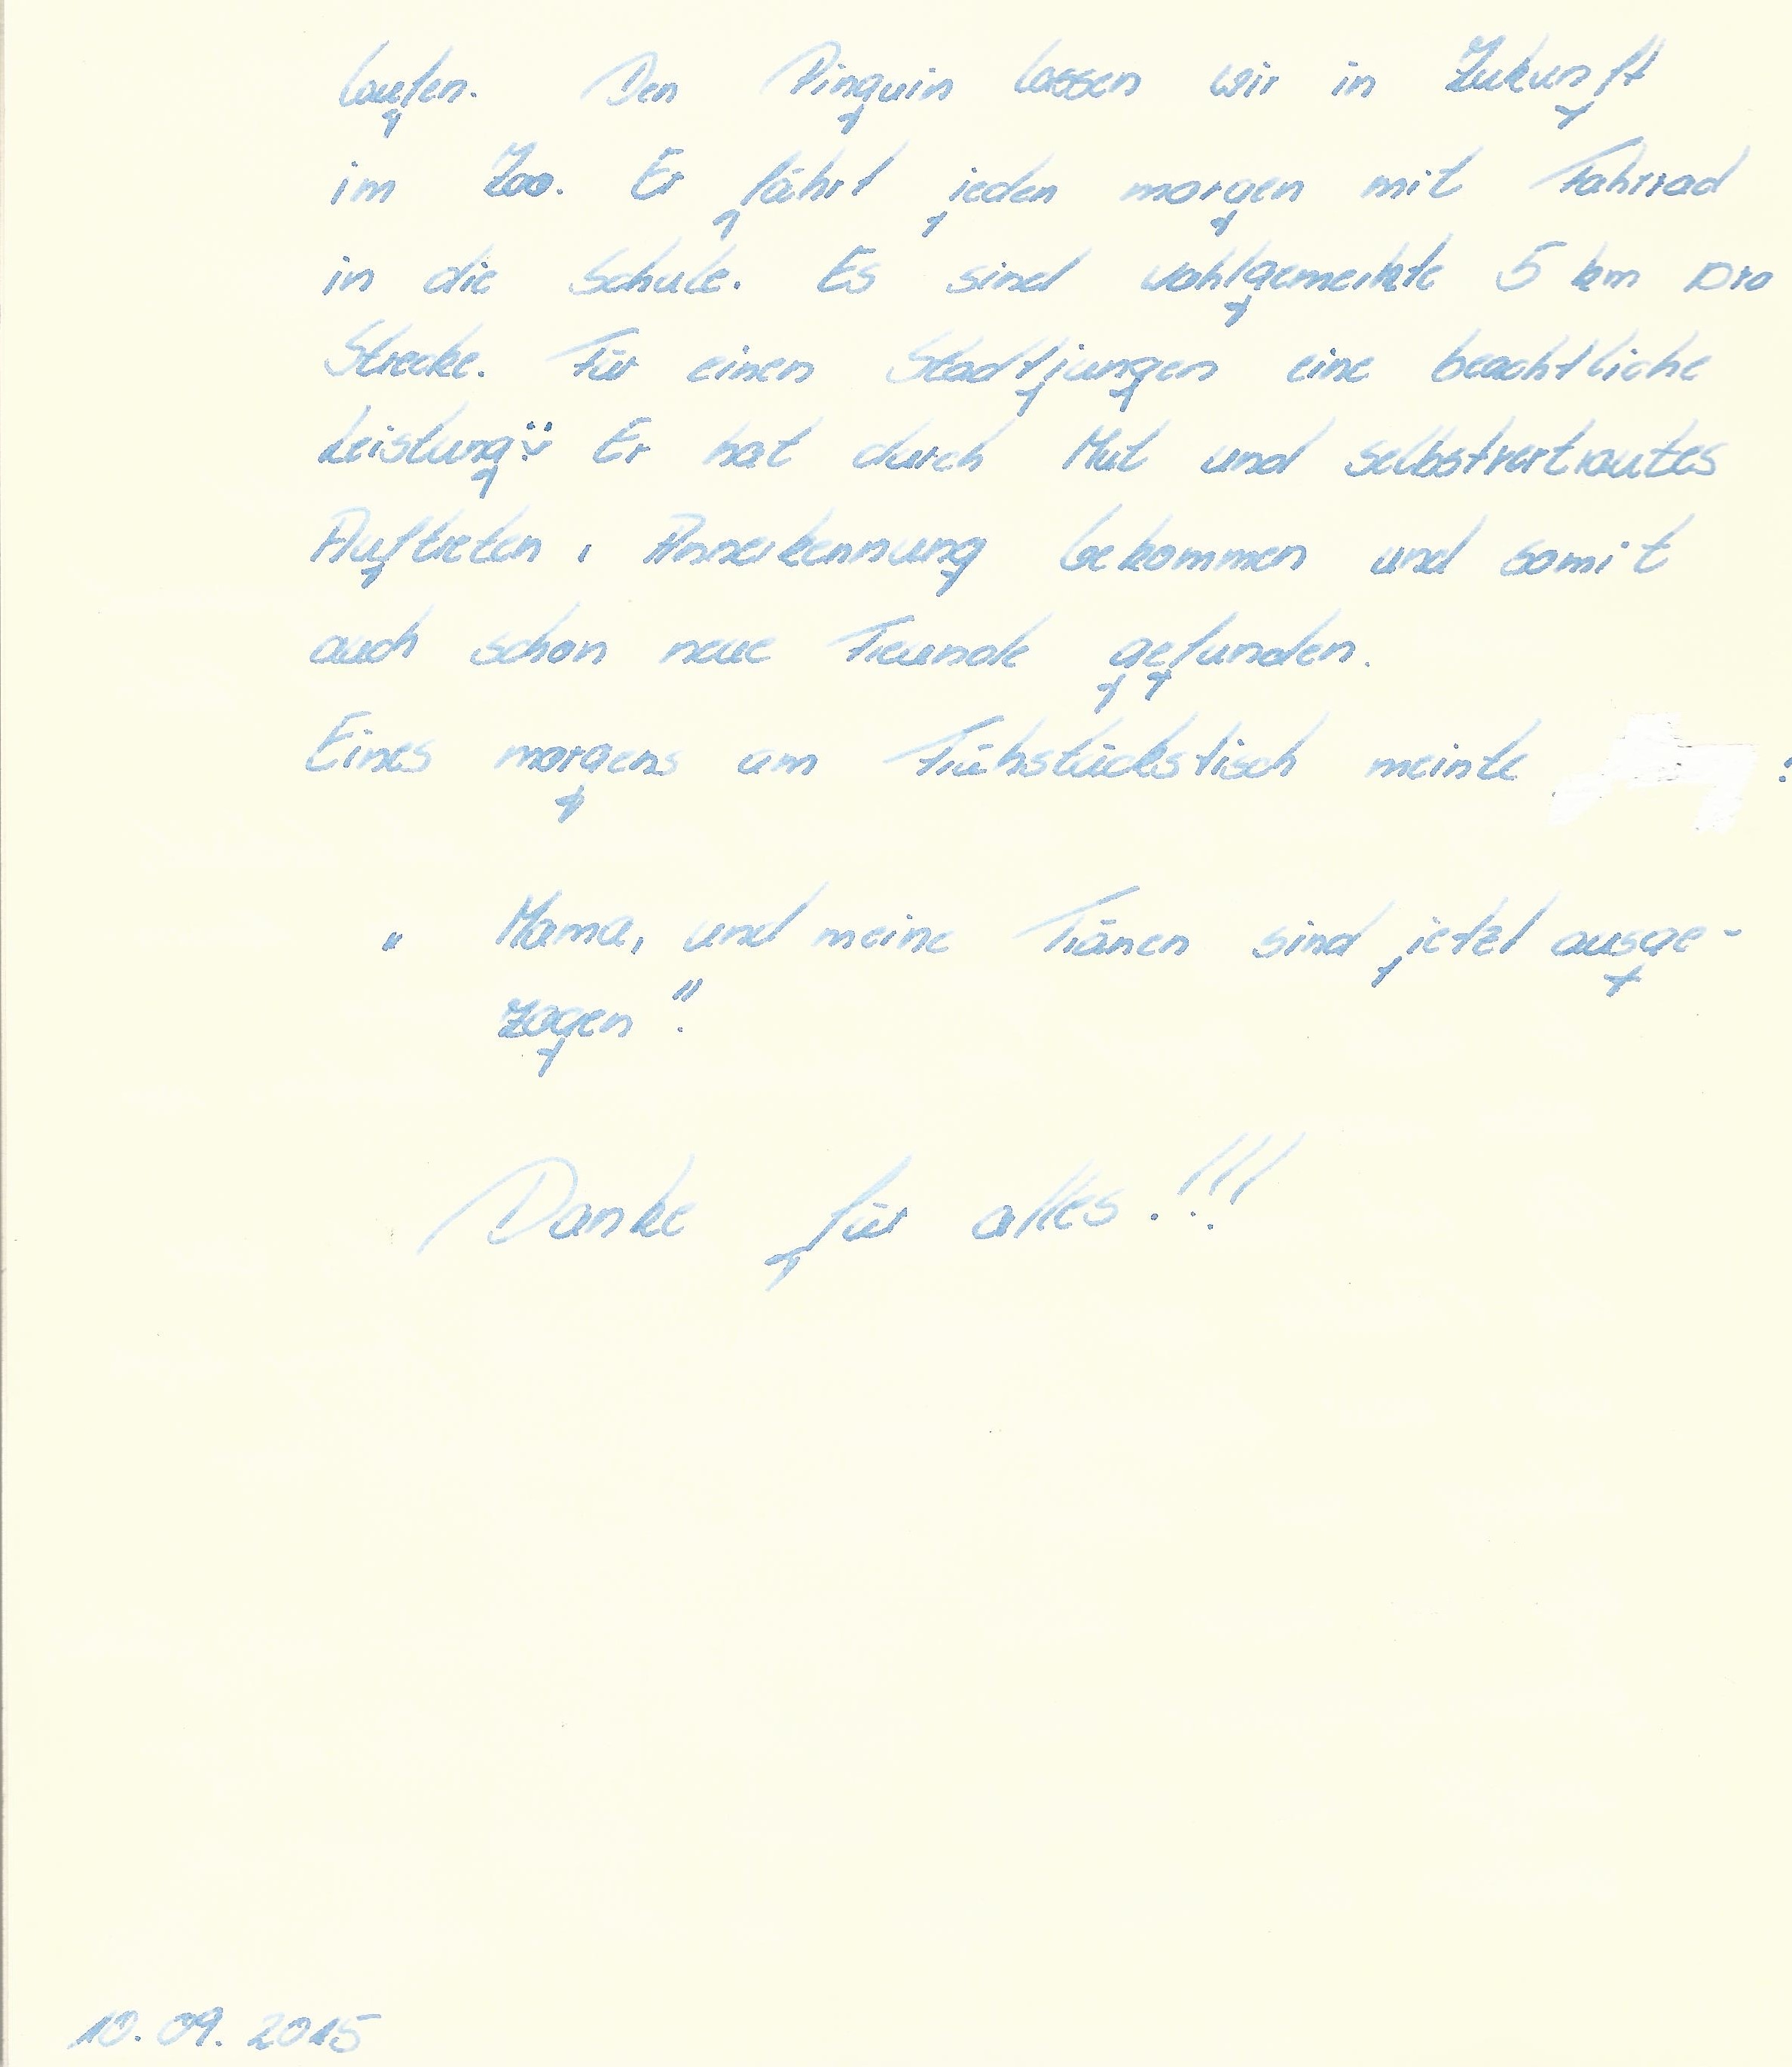 laufen. Den Pinguin lassen wir in Zukunft
im Zoo. Er fährt jeden morgen mit Fahrrad
in die Schule. Es sind wohlgemerkte 5 km pro
Strecke. Für einen Stadtjungen eine beachtliche
Leistung! Er hat durch Mut und selbstvertrautes
Auftreten, Annerkennung bekommen und somit
auch schon neue Freunde gefunden.
Eines morgens am Frühstückstisch meinte :
" Mama, und meine Tränen sind jetzt ausge-
zogen."
Danke für alles!!!
10.09.2015